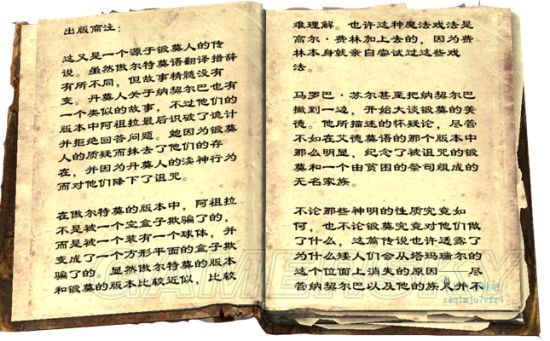 出版商注:
这又是一个源于锻莫人的传
说。虽然傲尔特莫语翻译措辞
有所不同,但故事精髓没有
变。丹莫人关于纳契尔巴也有
一个类似的故事,不过他们的
版本中阿祖拉最后识破了诡计
并拒绝回答问题。她因为锻莫
人的质疑而抹去了他们的存
在,并因为丹莫人的渎神行为
而对他们降下了诅咒。
在傲尔特莫的版本中,阿祖拉
不是被一个空盒子欺骗了的,
而是被一个装有一个球体,并
变成了一个方形平面的盒子欺
骗了的。显然傲尔特莫的版本
和锻莫的版本比较近似,比较
难理解。也许这种魔法戏法是
高尔·费林加上去的,因为费
林本身就亲自尝试过这些戏
法。
马罗巴·苏尔甚至把纳契尔巴
撇到一边,开始大谈锻莫的美
德。他所描述的怀疑论,尽管
不如在艾德莫语的那个版本中
那么明显,纪念了被诅咒的锻
莫和一个由贫困的祭司组成的
无名家族。
不论那些神明的性质究竟如
何,也不论锻莫究竟对他们做
了什么,这篇传说也许透露了
为什么矮人们会从塔玛瑞尔的
这个位面上消失的原因——尽
管纳契尔巴以及他的族人并不
GAMERSKY
zaq1mju7vfr4